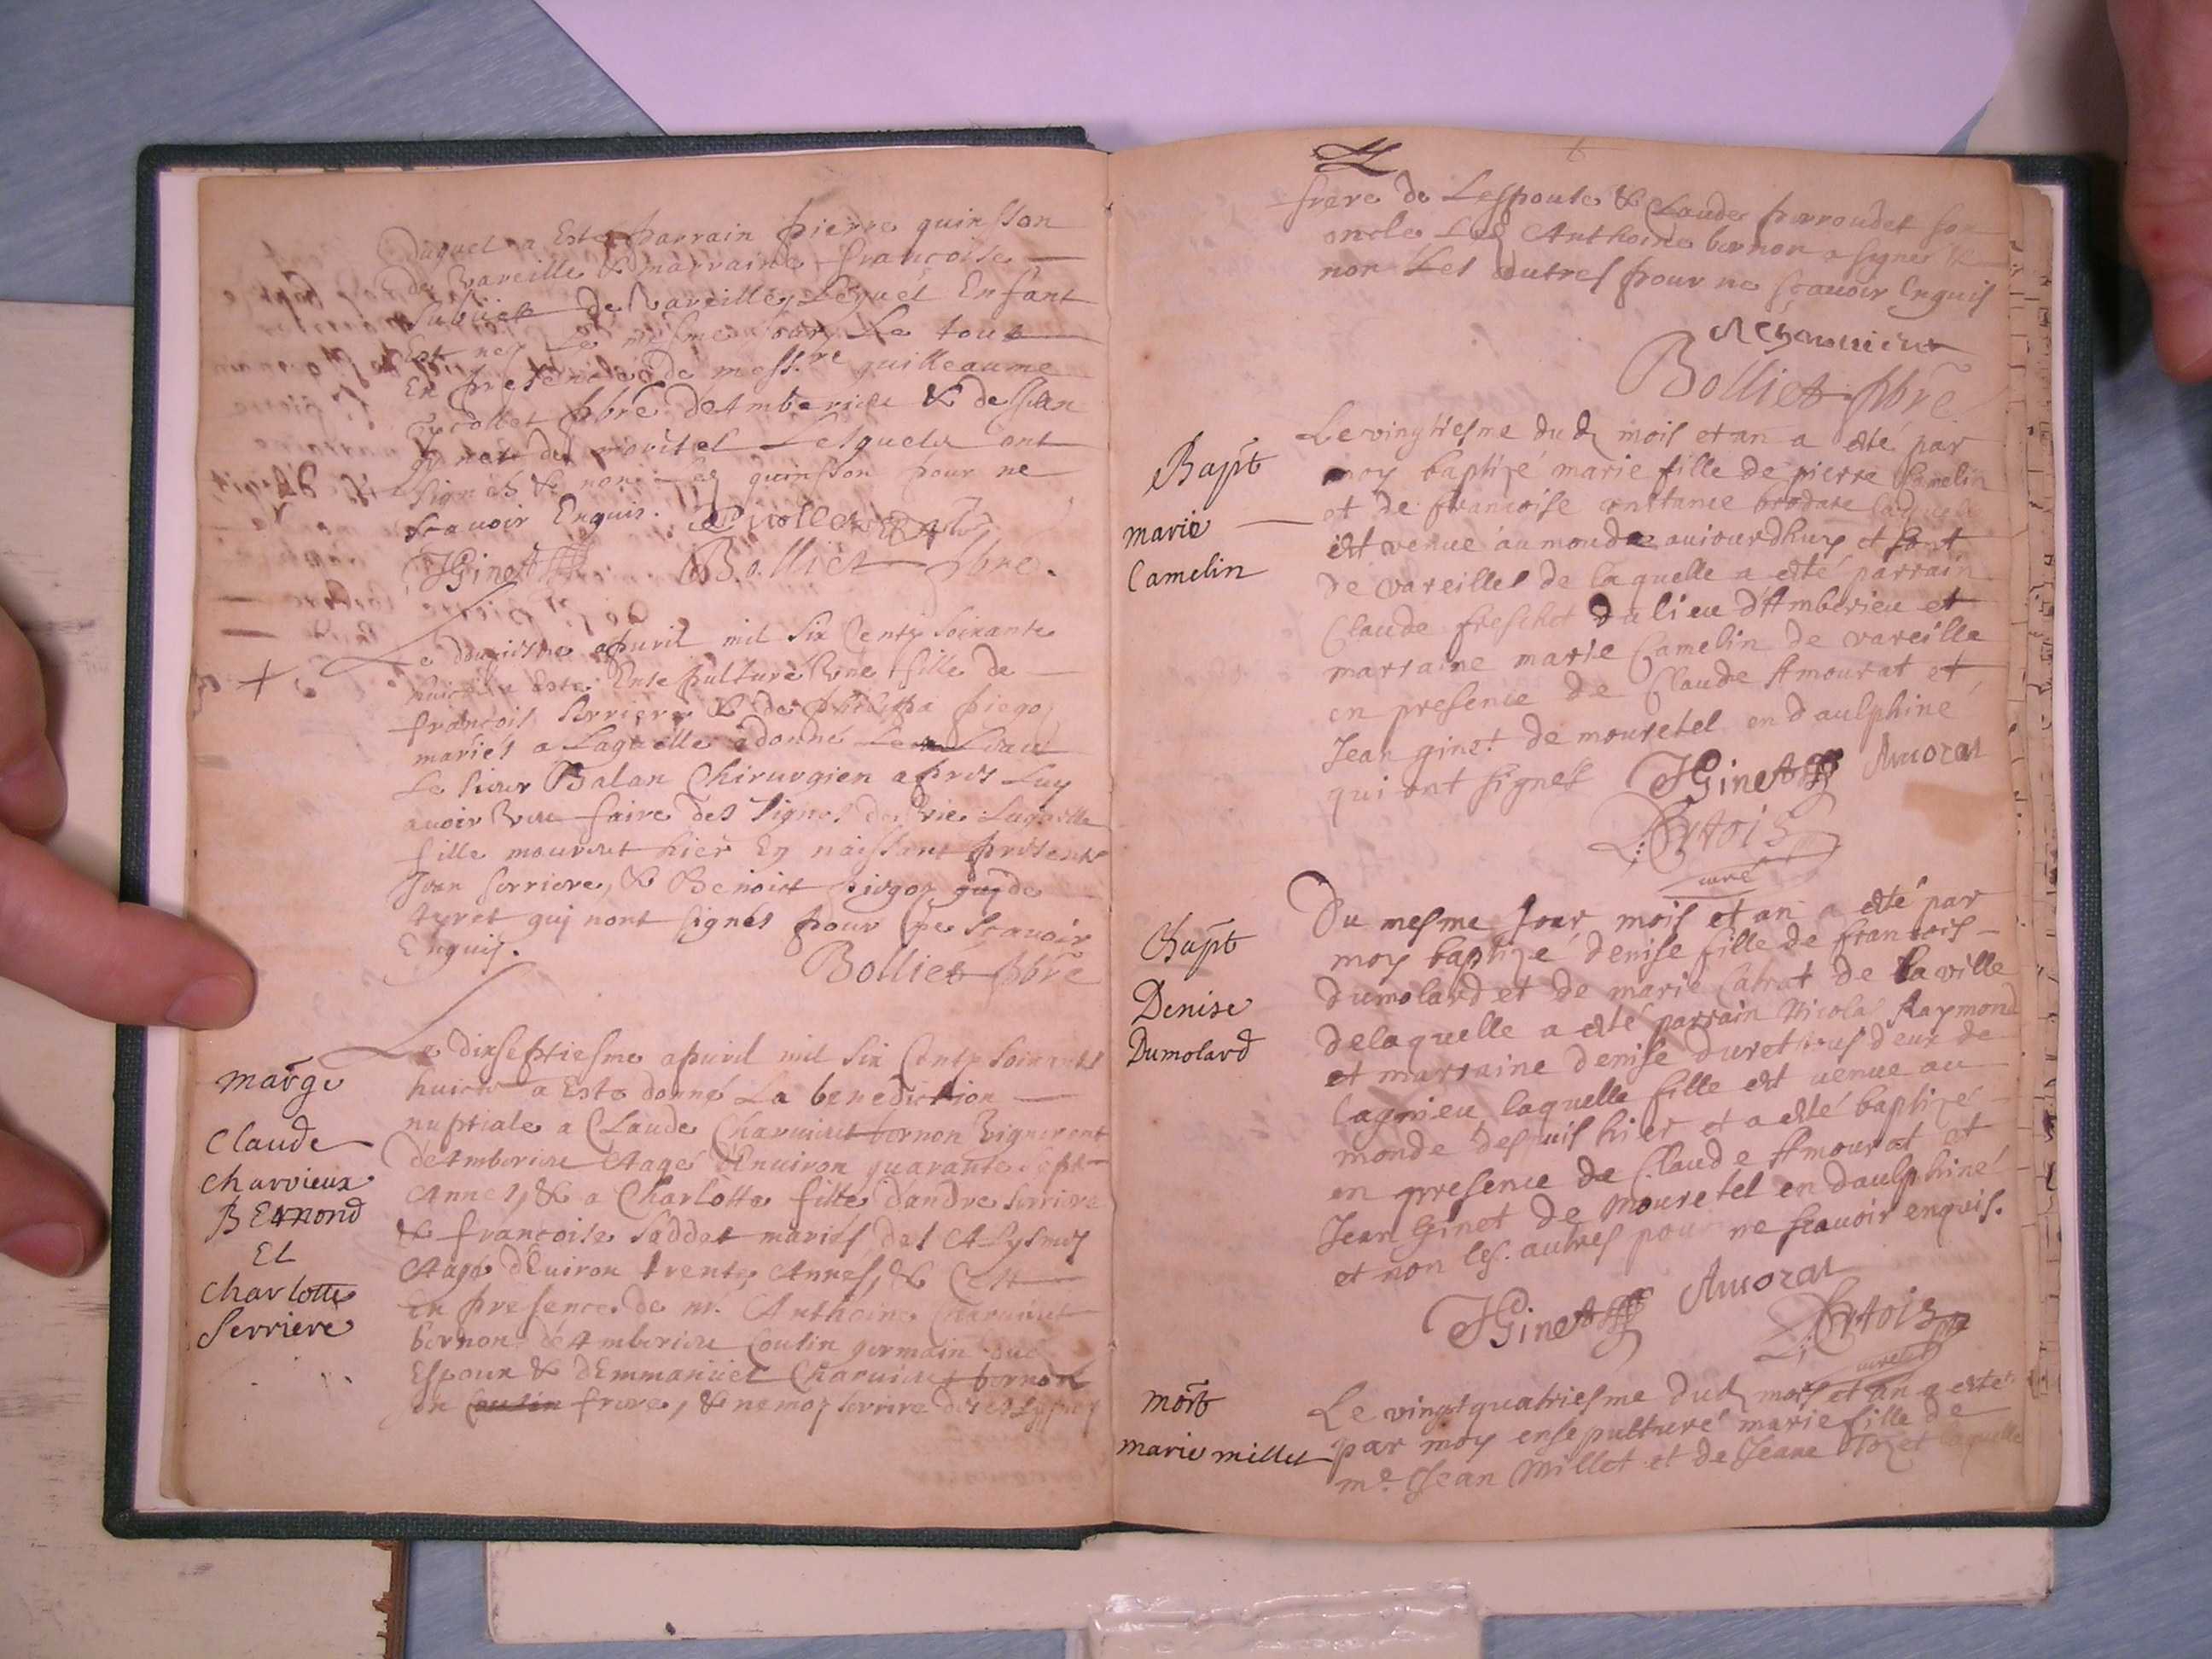 Duquel a Esté parrain pierre quinsson
de Vareille & marraine francoise
Subliet de Vareilles Lequel Enfant
Est ney Le mesme Jour Le tout
En presence de mess.re guilleaume
pbre DeAmberieu & de Jean
ginet de movitel Lesquels ont
Signés & non Led quinsson pour ne
scavoir Enquis.
JGinet Bolliet pbre.
Le douziesme apvril mil Six Centz Soixante
huict a Esté Ensepulturé Une fille de
francois Serriere & de philippa piegoz
mariés a Laquelle a donné Leau
Le Sieur Balan Chirurgien apres Luy
avoir Veu faire des Signes de vie Laquelle
fille mourut hier En naissant presents
Jean Serriere, & Benoict piegoz de
tyret qui nont Signés pour ne Scavoir
Enquis.
Bolliet pbre
Marge
Claude
Charvieux
BERnond
Et
Charlotte
Serriere
Le dixseptiesme apuvil mil Six Centz Soixante
huict a Esté donné La benediction
nuptiale a Claude Charvieu bernon Vigneront
deAmberieu Aagé dEnviron quarante sept
Annes, & a Charlotte fille dandre Serriere
& francoise Saddet mariés des Alysmes
Aagé dEviron trente Annes, & Cest
En presence de m. Anthoine Charvieu
bernon deAmberieu Cousin germain dud
Espoux & dEmmanuel Charvieu bernon
Son Cousin frere, & nemoz Serriere des Alysmes
6
frere de Lespouse & Claude perroudet son
oncle Led Anthoine bernon a signé &
non Les autres pour ne scavoir Enquis
A Charvieux
Bolliet pbre
Bapt
marie
Camelin
Le vingtiesme dud mois et an a esté par
moy baptizé marie fille de pierre Camelin
et de francoise constance brodate laquelle
est venue au monde auiourdhuy et sont
de vareilles de laquelle a esté parrain
Claude freschet du lieu dAmberieu et
marraine marie Camelin de vareille
en presence de Claude Amourat et
Jean ginet de mouretel en daulphiné
qui ont signes JGinet Amorat
Artois
curé
Bapt
Denise
Dumolard
Du mesme Jour mois et an a esté par
moy baptizé denise fille de francois
dumolard et de marie Cabrat de la ville
delaquelle a esté parrain Nicola Raymond
et marraine denise duret tous deux de
lagnieu laquelle fille est venue au
monde despuis hier et a esté baptizé
en presence de Claude Amourat et
Jean Ginet de mouretel en daulphiné
et non les autres pour ne scavoir enquis.
JGinet Amorat
Artois
curé
mort
marie millet
Le vingtquatriesme dud mois et an a esté
par moy ensepulturé marie fille de
me Jean Millet et de Jeane laquelle